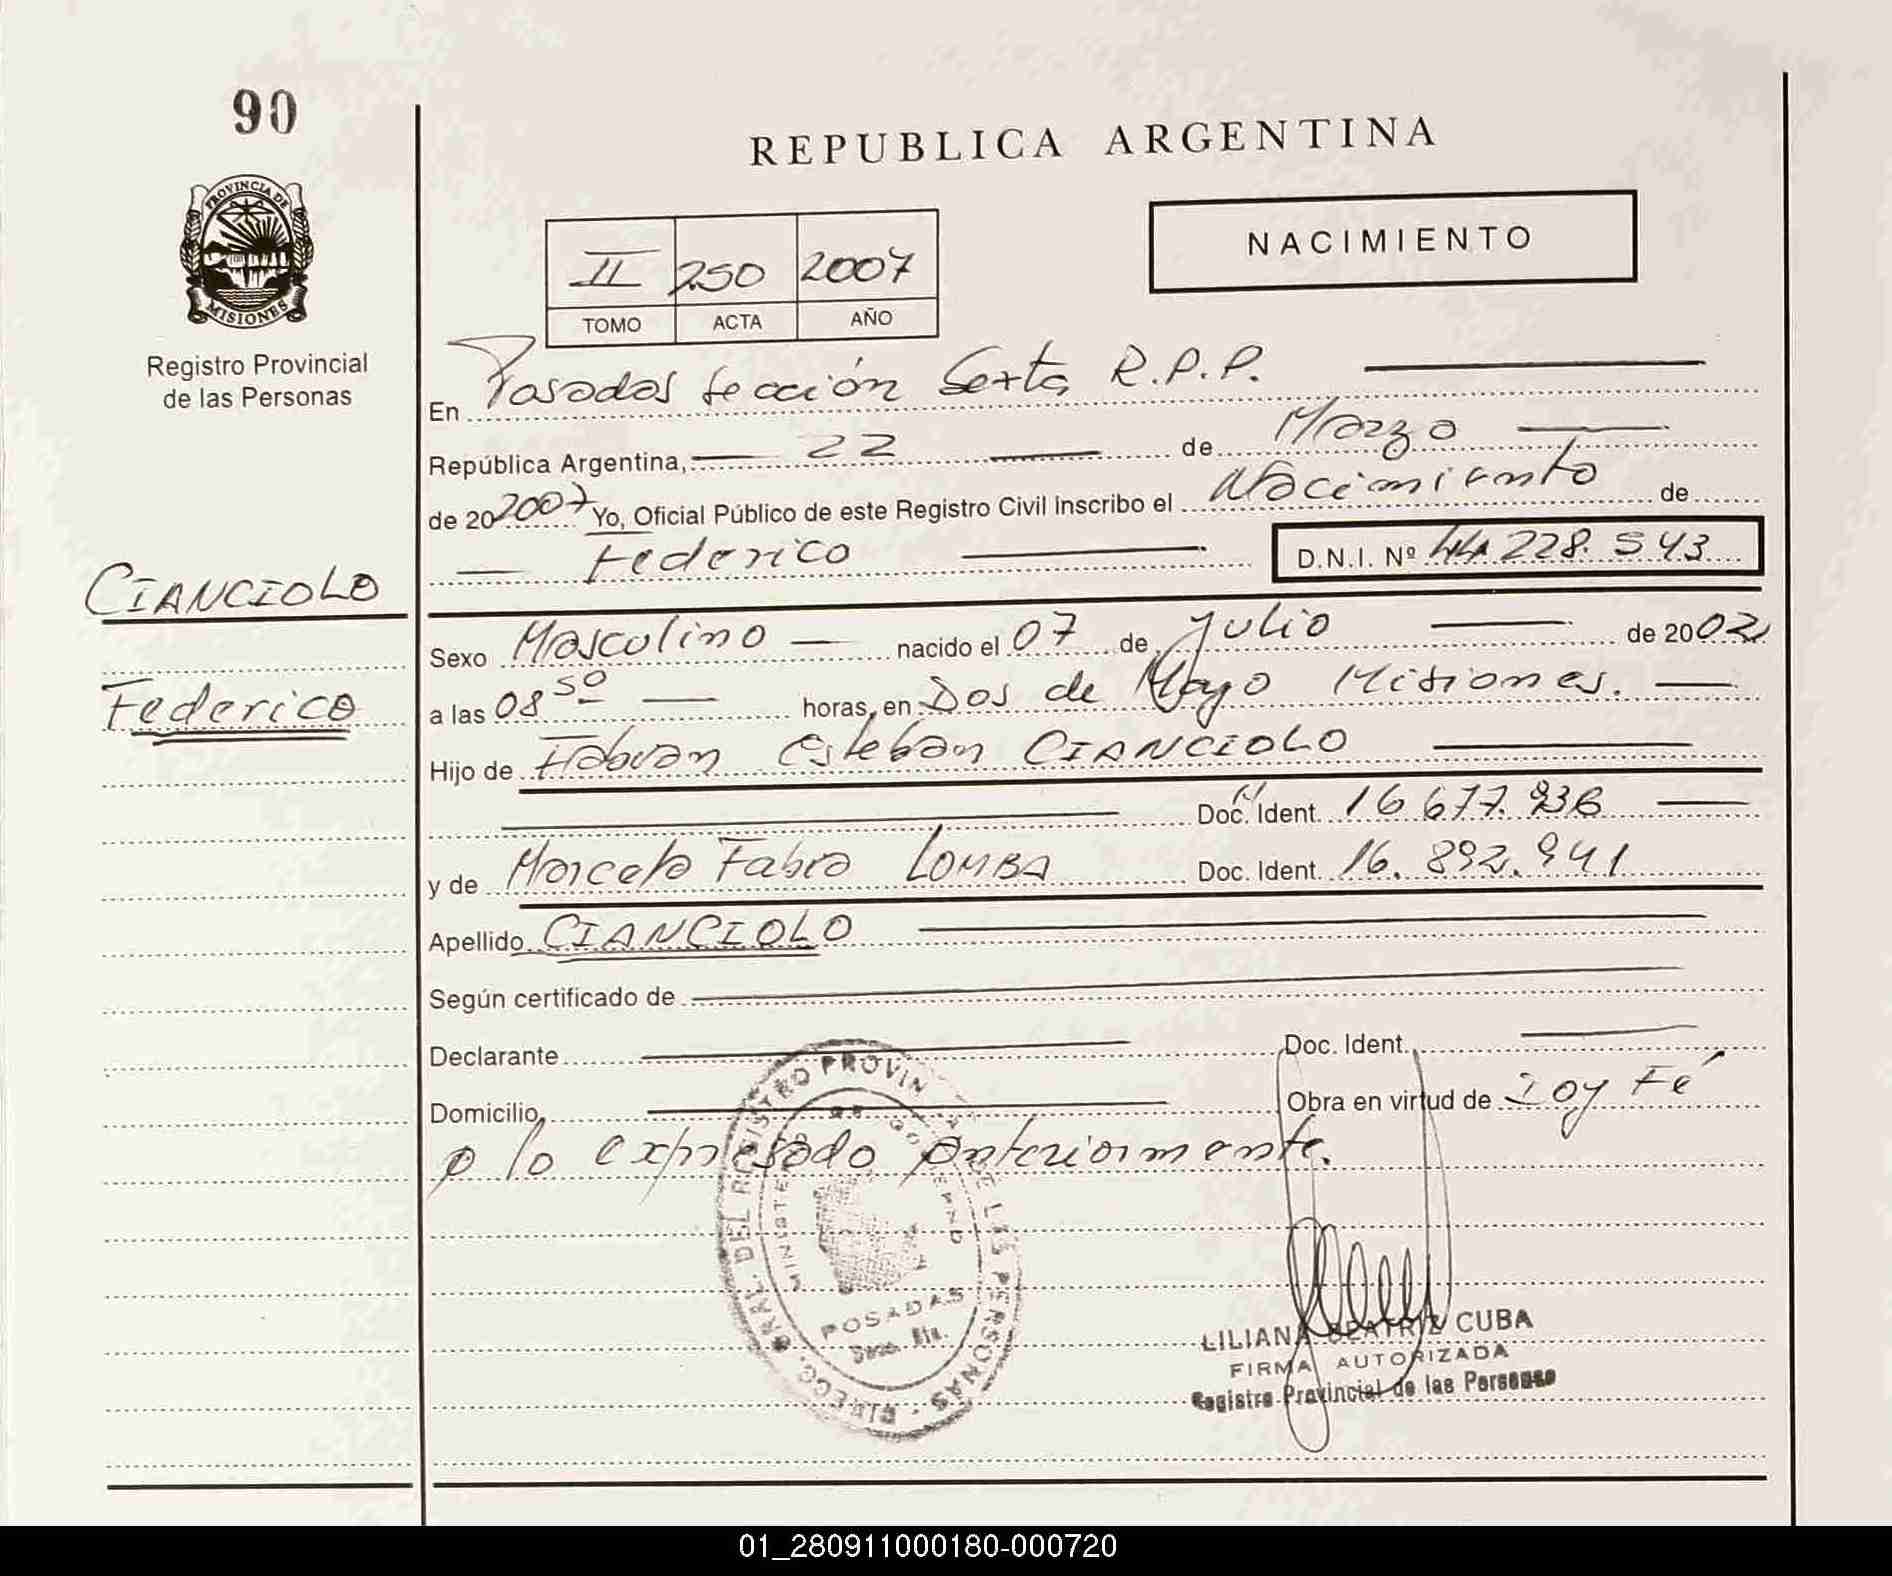 90
PROVINCIA DE
MISIONES
Registro Provincial
de las Personas
CIANCIOLO
Federico
REPUBLICA ARGENTINA
NACIMIENTO
II 250 2007
TOMO ACTA AÑO
En Posadas Sección Sexta R.P.P.
República Argentina, 22 de Marzo
de 20 2007 Yo, Oficial Público de este Registro Civil Inscribo el Nacimiento de
Federico D.N.I. Nº 44.228.543
Sexo Masculino nacido el 07 de Julio de 2002
a las 08 50 horas, en Dos de Mayo Misiones.
Hijo de Fabian Esteban CIANCIOLO
Doc. Ident. 16.677.936
y de Marcela Fabia LOMBA Doc. Ident. 16.892.941
Apellido CIANCIOLO
Según certificado de
Declarante Doc. Ident.
Domicilio Obra en virtud de Doy Fé
a lo expresado anteriormente.
DIRECC. GRAL. DEL REGISTRO PROVINCIAL DE LAS PERSONAS
MINISTERIO DE GOBIERNO
POSADAS
Secc. 6ta.
LILIANA BEATRIZ CUBA
FIRMA AUTORIZADA
Registro Provincial de las Personas
01_280911000180-000720